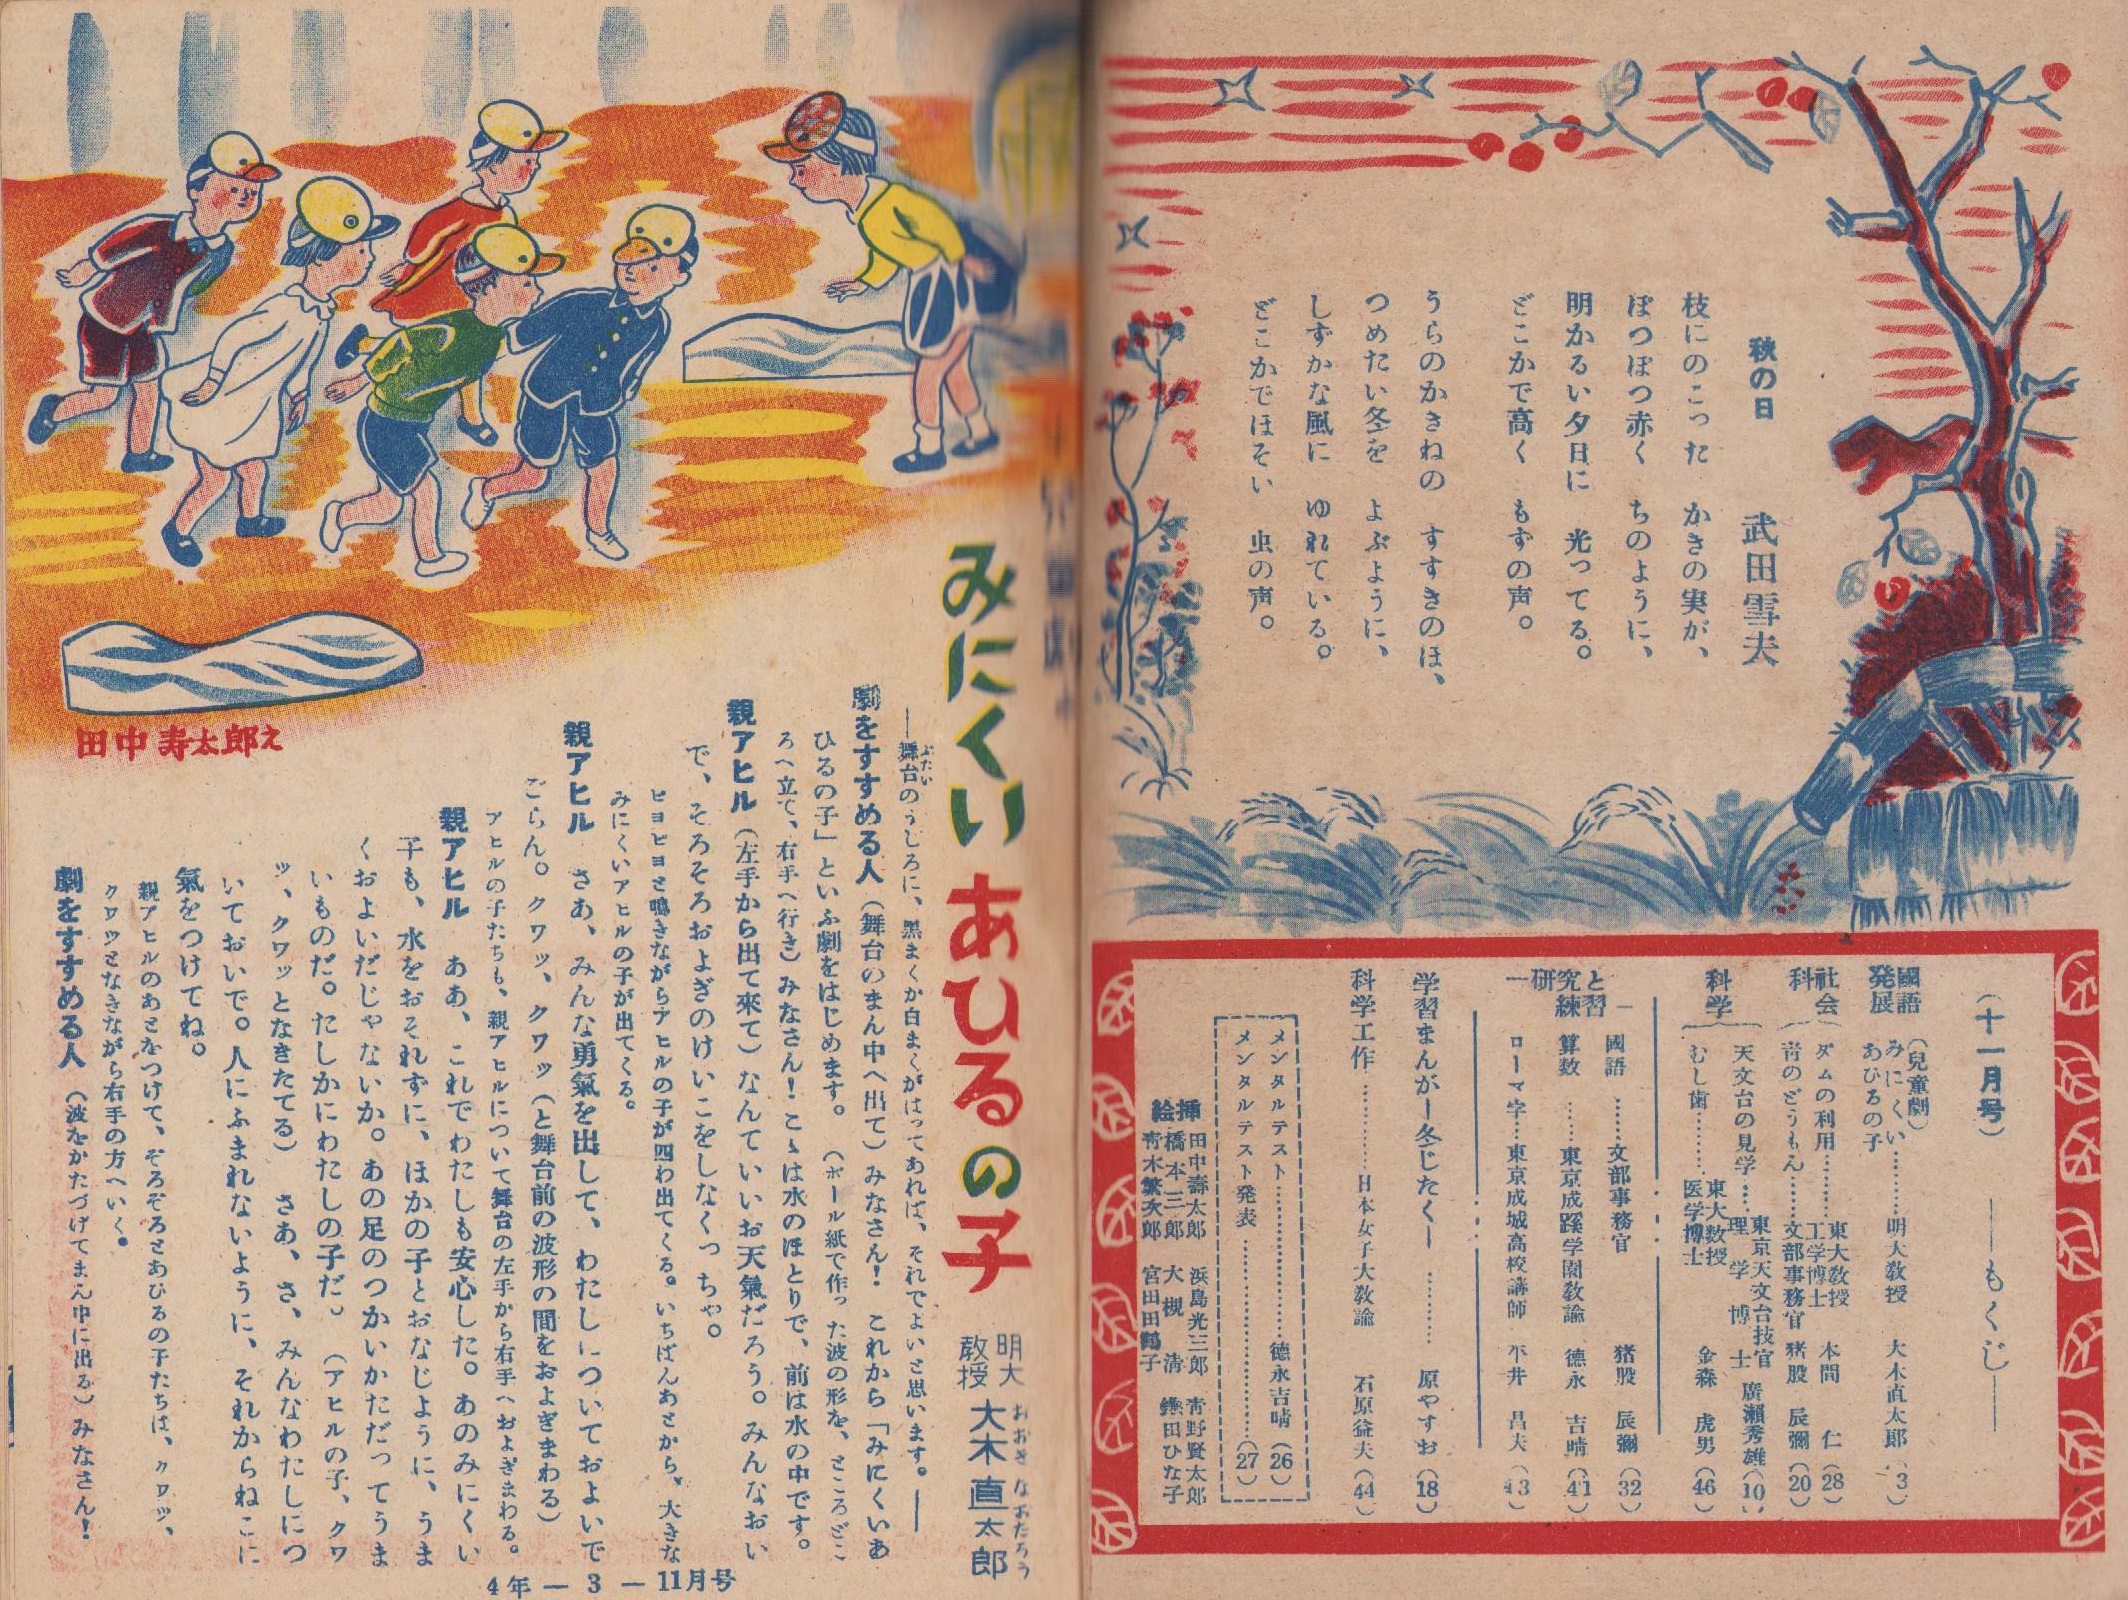 秋の日　武田雪夫
枝にのこった　かきの実が、
ぽつぽつ赤く　ちのように、
明かるい夕日に　光ってる。
どこかで高く　もずの声。
うらのかきねの　すすきのほ、
つめたい冬を　よぶように、
しずかな風に　ゆれている。
どこかでほそい　虫の声。
（十一月号）　――もくじ――
國語発展
（兒童劇）みにくいあひるの子………明大教授　大木直太郎（3）
社会科
ダムの利用………東大教授工学博士　本間　仁（28）
昔のどうもん………文部事務官　猪股　辰彌（20）
科学
天文台の見学……東京天文台技官理学博士　廣瀬秀雄（10）
むし歯………東大教授医学博士　金森　虎男（46）
―研究と練習―
國語………文部事務官　猪股　辰彌（32）
算数……東京成蹊学園教諭　德永　吉晴（41）
ローマ字…東京成城高校講師　平井　昌夫（43）
学習まんが―冬じたく―………原やすお（18）
科学工作………日本女子大教諭　石原益夫（44）
メンタルテスト………………德永吉晴（26）
メンタルテスト発表………………（27）
挿絵
田中壽太郎　浜島光三郎　青野賢太郎
橋本三郎　大槻　淸　鎌田ひな子
青木繁次郎　宮田田鶴子
みにくいあひるの子
明大教授　大木直太郎
おおき　なおたろう
―舞台のうしろに、黒まくか白まくがはってあれば、それでよいと思います。―
ぶたい
劇をすすめる人（舞台のまん中へ出て）みなさん！　これから「みにくいあ
ひるの子」といふ劇をはじめます。（ボール紙で作った波の形を、ところどこ
ろへ立て、右手へ行き）みなさん！こゝは水のほとりで、前は水の中です。
親アヒル（左手から出て來て）なんていいお天氣だろう。みんなおい
で、そろそろおよぎのけいこをしなくっちゃ。
ヒヨヒヨと鳴きながらアヒルの子が四わ出てくる。いちばんあとから、大きな
みにくいアヒルの子が出てくる。
親アヒル　さあ、みんな勇氣を出して、わたしについておよいで
ごらん。クワッ、クワッ（と舞台前の波形の間をおよぎまわる）
アヒルの子たちも、親アヒルについて舞台の左手から右手へおよぎまわる。
親アヒル　ああ、これでわたしも安心した。あのみにくい
子も、水をおそれずに、ほかの子とおなじように、うま
くおよいだじゃないか。あの足のつかいかただってうま
いものだ。たしかにわたしの子だ。（アヒルの子、クワ
ッ、クワッとなきたてる）　さあ、さ、みんなわたしにつ
いておいで。人にふまれないように、それからねこに
氣をつけてね。
親アヒルのあとをつけて、ぞろぞろとあひるの子たちは、クワッ、
クワッとなきながら右手の方へいく。
劇をすすめる人（波をかたづけてまん中に出る）みなさん！
田中寿太郎え
4年 — 3 — 11月号